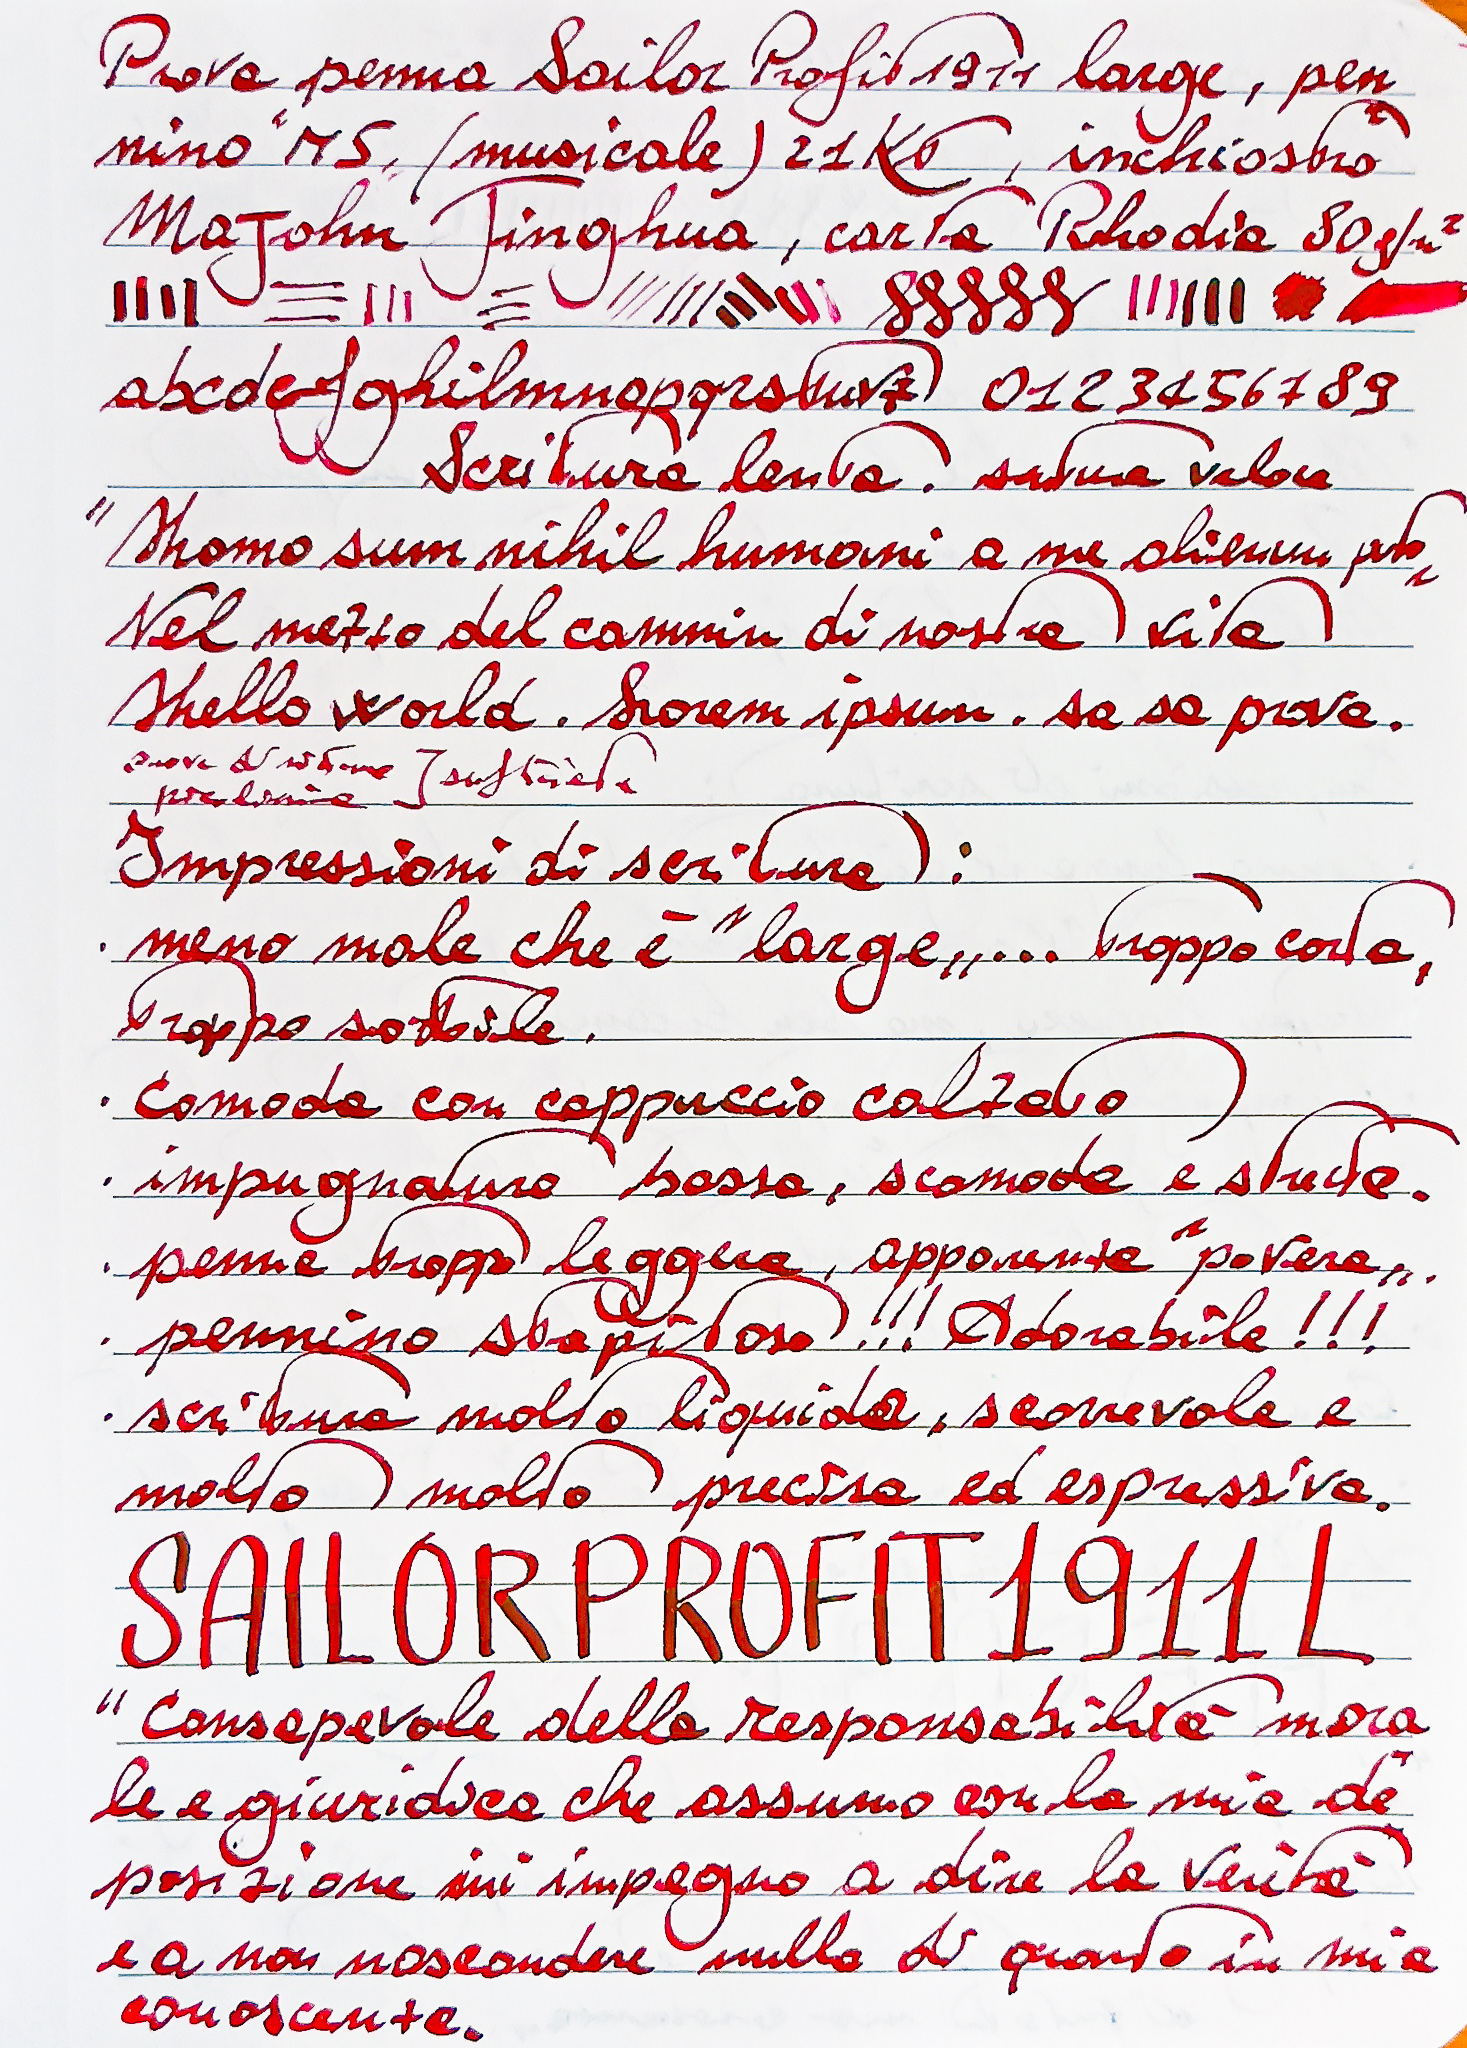 Prova penna Sailor Profit 1911 large, pen
nino "MS" (musicale) 21 Kt, inchiostro
MaJohn Jinghua, carta Rhodia 80 g/m²
abcdefghilmnopqrstuvz 0123456789
Scrittura lenta. veloce
"Homo sum nihil humani a me alienum puto"
Nel mezzo del cammin di nostra vita
Hello world. Lorem ipsum. sa sa prova.
prova di scrittura
Impressioni di scrittura:
· meno male che è "large"... troppo corta,
troppo sottile.
· comoda con cappuccio calzato
· impugnatura bassa, scomoda e stretta.
· penna troppo leggera, apparenza "povera".
· pennino strapitoso!!! Adorabile!!!
· scrittura molto liquida, scorrevole e
molto molto precisa ed espressiva.
SAILOR PROFIT 1911 L
"Consapevole della responsabilità mora
le e giuridica che assumo con la mia de
posizione mi impegno a dire la verità
e a non nascondere nulla di quanto in mia
conoscenza.